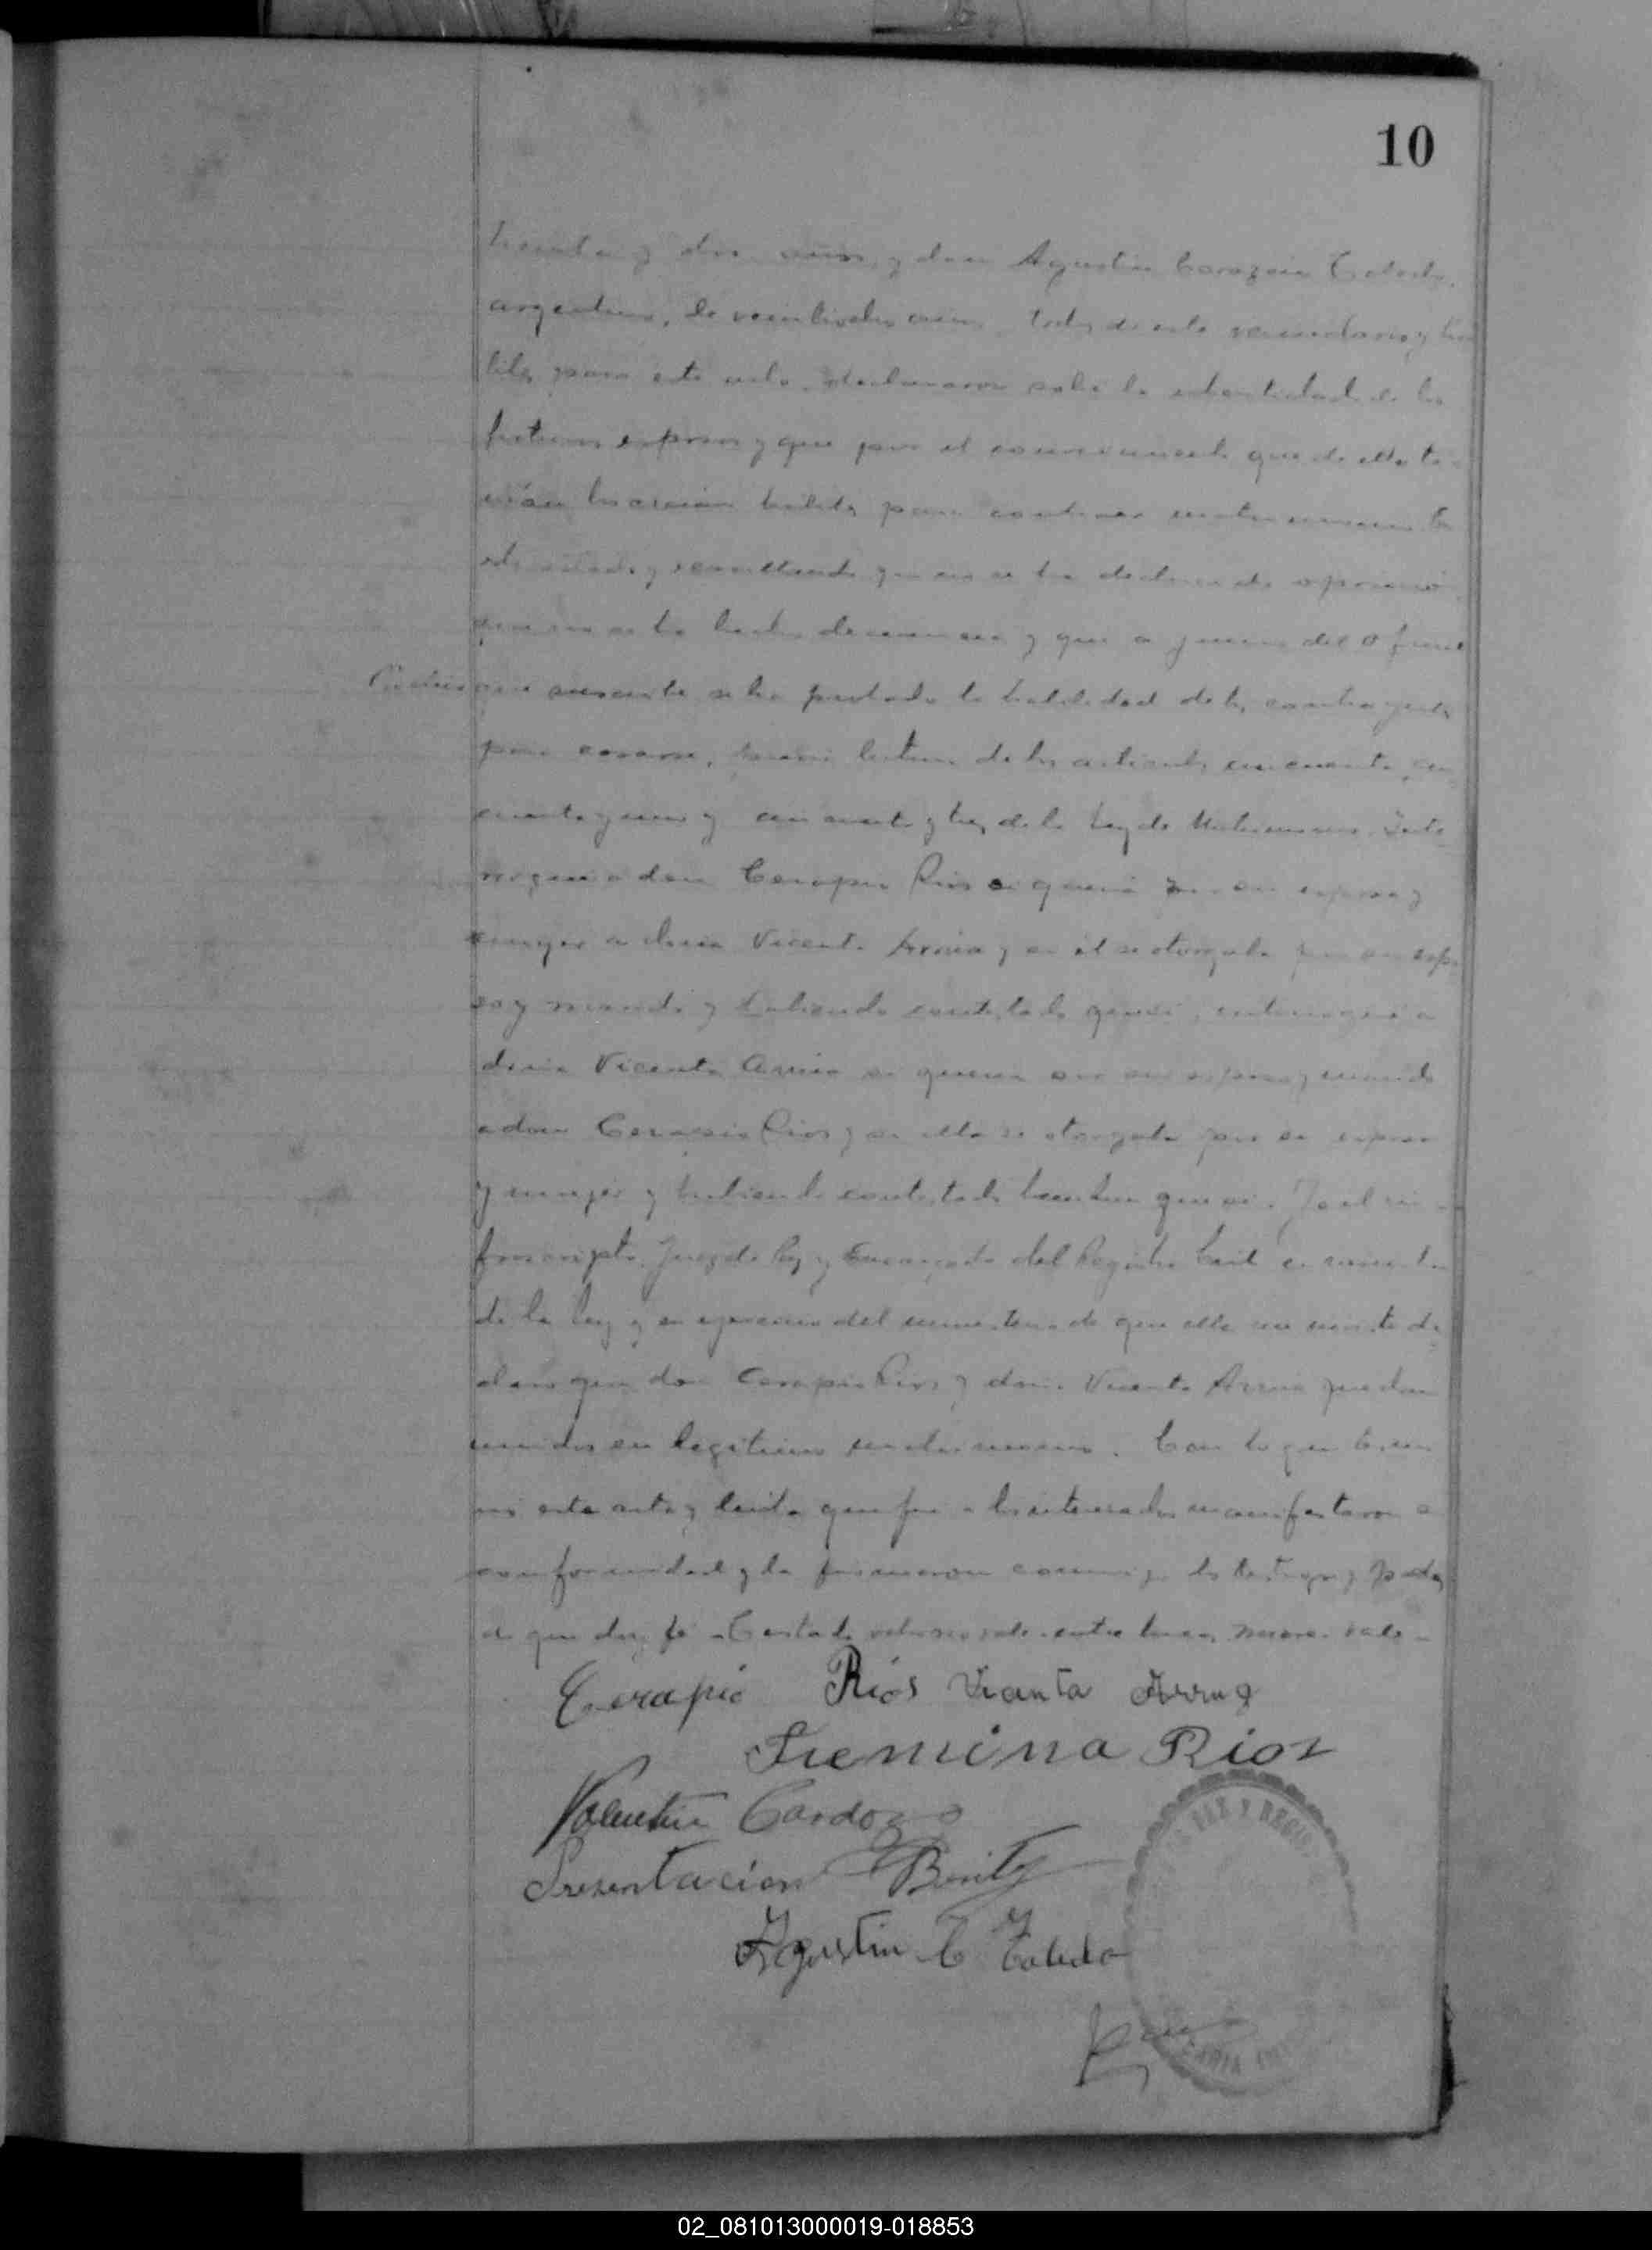 10
treinta y dos años, y don Agustin Corazon Toledo,
argentino, de veintiocho años todos de este vecindario y há
biles para este acto, declararon sobre la identidad de los
futuros esposos y que por el conocimiento que de ellos te
nían los creían hábiles para contraer matrimonio
y resultando que no se ha deducido oposición
que no se ha hecho denuncia y que a juicio del Oficial
que suscribe se ha probado la habilidad de los contrayentes
para casarse, previa lectura de los artículos cincuenta, cin
cuenta y uno y cincuenta y tres de la Ley de Matrimonio. Inte
rrogué a don Cerapio Rios si quería por su esposa y
mujer a doña Vicenta Arrua y si él se otorgaba por su espo
so y marido y habiendo contestado que sí, interrogué a
doña Vicenta Arrua si quería por su esposo y marido
a don Cerapio Rios y si ella se otorgaba por su esposa
y mujer y habiendo contestado también que sí. Yo el in
frascripto Juez de Paz y Encargado del Registro Civil en nombre
de la ley y en ejercicio del ministerio de que ella me inviste de
claro que don Cerapio Rios y doña Vicenta Arrua quedan
unidos en legítimo matrimonio. Con lo que termi
nó este acto y leída que fué a los interesados manifestaron
conformidad y la firmaron conmigo los testigos y padres
de que doy fé
Cerapio Rios Vicenta Arrua
Fremina Rios
Valentin Cardozo
Presentacion Benitez
Agustin C Toledo
PAZ Y REGIS
02_081013000019-018853